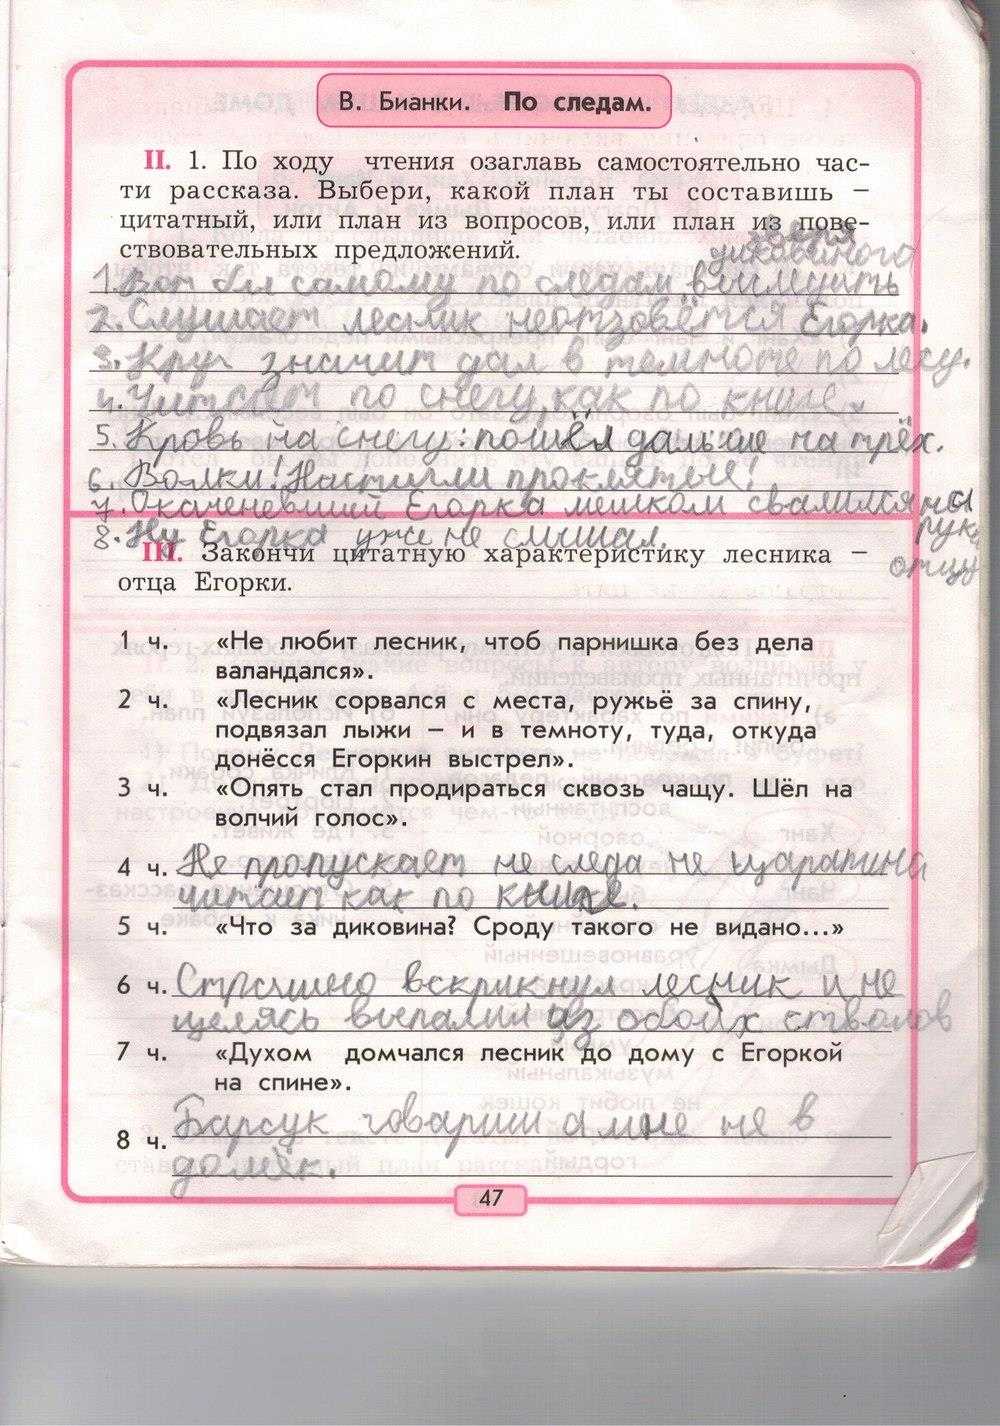 В. Бианки. По следам.
II. 1. По ходу чтения озаглавь самостоятельно час-
ти рассказа. Выбери, какой план ты составишь –
цитатный, или план из вопросов, или план из пове-
ствовательных предложений.
зверя
диковиного
1. Вот бы самому по следам выследить
2. Слушает лесник неотзовётся Егорка.
3. Круг значит дал в темноте по лесу.
4. Читает по снегу, как по книге.
5. Кровь на снегу: пошёл дальше на трёх.
6. Волки! Настигли проклятые!
7. Окаченевший Егорка мешком свалился на
руки
отцу
8. Ну Егорка уже не слышал.
III. Закончи цитатную характеристику лесника –
отца Егорки.
1 ч. «Не любит лесник, чтоб парнишка без дела
валандался».
2 ч. «Лесник сорвался с места, ружьё за спину,
подвязал лыжи – и в темноту, туда, откуда
донёсся Егоркин выстрел».
3 ч. «Опять стал продираться сквозь чащу. Шёл на
волчий голос».
4 ч. Не пропускает не следа не царапина
читает как по книге.
5 ч. «Что за диковина? Сроду такого не видано...»
6 ч. Страшно вскрикнул лесник и не
целясь выпалил из обоих стволов
7 ч. «Духом домчался лесник до дому с Егоркой
на спине».
8 ч. Барсук говориш а мне не в
домёк.
47